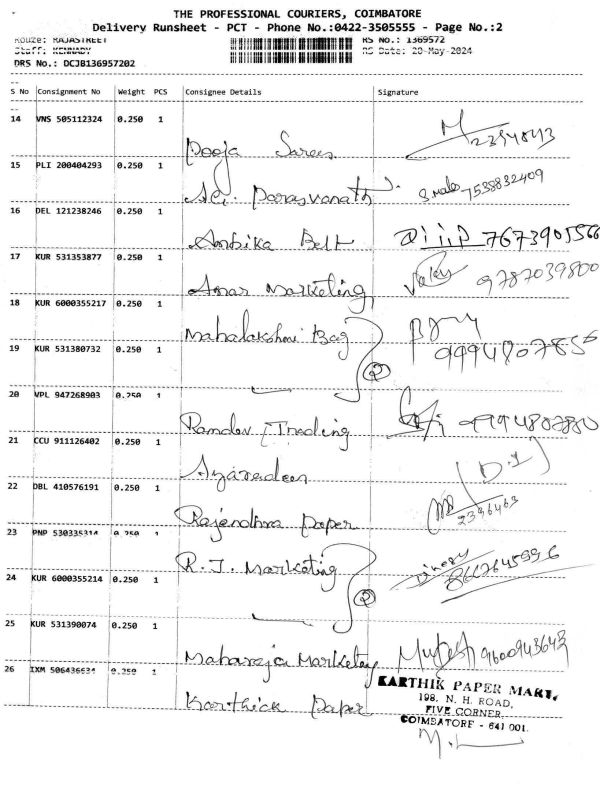 THE PROFESSIONAL COURIERS, COIMBATORE
Delivery Runsheet - PCT - Phone No.:0422-3505555 - Page No.:2
Route: RAJASTREET RS No.: 1369572
Staff: KENNADY RS Date: 20-May-2024
DRS No.: DCJB136957202
S No Consignment No Weight PCS Consignee Details Signature
14 VNS 505112324 0.250 1
Pooja Sarees 2394843
15 PLI 200404293 0.250 1
Parasvanath 7538832409
16 DEL 121238246 0.250 1
Ambika Belt Dilip 7673901566
17 KUR 531353877 0.250 1
Amar Marketing 9787039800
18 KUR 6000355217 0.250 1
Mahalakshmi Bag
19 KUR 531380732 0.250 1
②
20 VPL 947268903 0.250 1
Ramdev Trading
21 CCU 911126402 0.250 1
22 DBL 410576191 0.250 1
Rajendhra Paper 2396463
23 PNP 530335314 0.250 1
R.J. Marketing Dinesh
24 KUR 6000355214 0.250 1
②
25 KUR 531390074 0.250 1
Maharaja Marketing Mukesh 9600943643
26 IXM 506436634 0.250 1
Karthick Paper
KARTHIK PAPER MART,
198, N. H. ROAD,
FIVE CORNER,
COIMBATORE - 641 001.